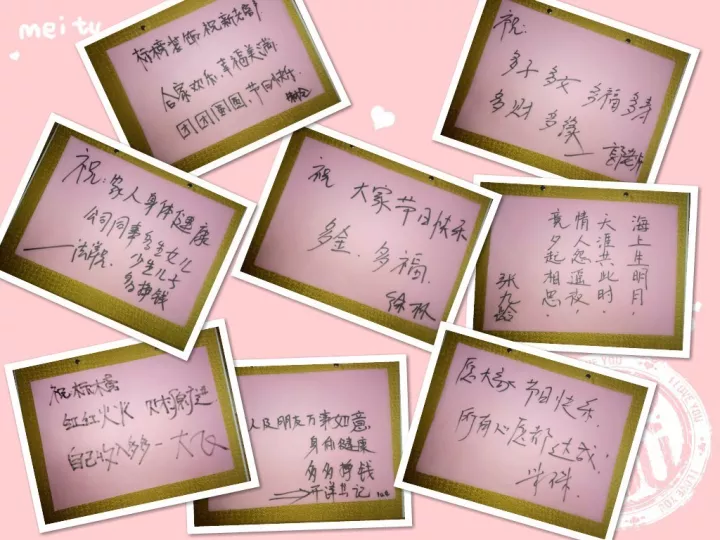 meitu
标榜装饰祝新老客户
合家欢乐.幸福美满
团团圆圆.节日快乐.
祝:
多子多女 多福多寿
多财多缘
祝:家人身体健康
公司同事多生女儿
少生儿子
多挣钱
祝 大家节日快乐
多金.多福.
徐林
海上生明月,
天涯共此时.
情人怨遥夜,
竟夕起相思.
张九龄
祝标榜
红红火火
自己收入多多一大飞
人及朋友万事如意
身体健康
多多挣钱
愿大家 节日快乐.
所有心愿都达成.
I LOVE YOU